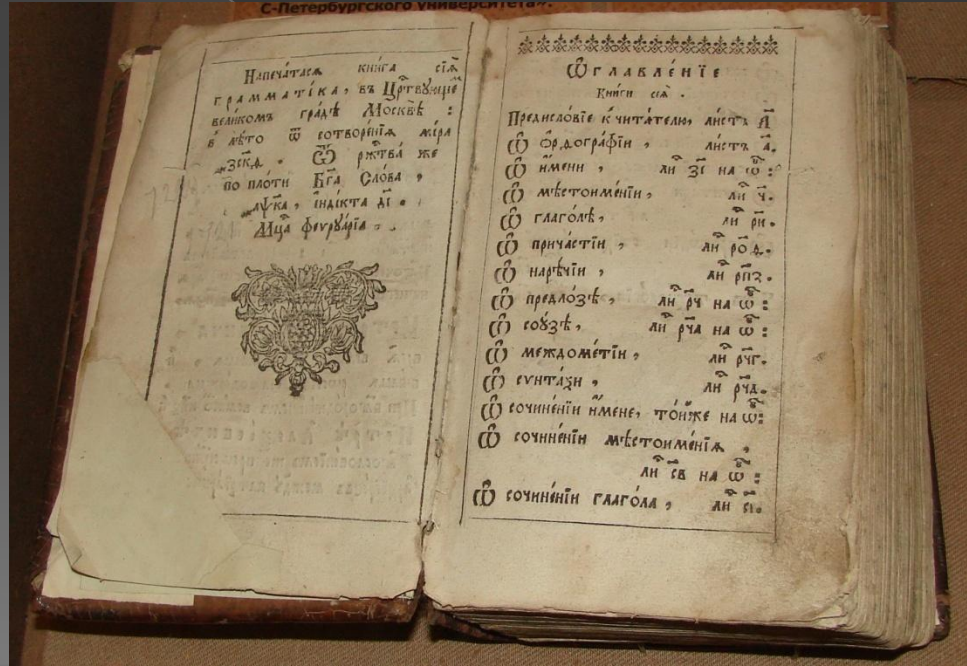 С-Петербургского университета».
Напеча́тасѧ кни́га сїѧ̀
грамматі́ка, въ Црⷭ҇твꙋющеⷨ
вели́комъ гра́дѣ Москвѣ̀ :
в̾ лѣ́то ѿ сотворе́нїѧ мі́ра
҂зскѳ҃. Ѿ ржⷭ҇тва́ же
по пло́ти Бг҃а Сло́ва ,
҂аѱк҃а, і҆ндїкта д҃і .
Мцⷭ҇а феѵрꙋа́рїа .
Ѡ҆главле́нїе
Кни́ги сеѧ̀ .
Предисло́вїе к̾ чита́телю, ли́стъ а҃
Ѡ҆ ѻ҆рѳогра́фїи , ли́стъ а҃.
Ѡ҆ и҆́мени , лиⷭ҇ з҃і на ѡ҆ⷠ :
Ѡ҆ мѣстоиме́нїи , лиⷭ҇ ч҃.
Ѡ҆ глаго́лѣ , лиⷭ҇ р҃и.
Ѡ҆ прича́стїи , лиⷭ҇
Ѡ҆ нарѣ́чїи , лиⷭ҇ рп҃з.
Ѡ҆ предло́зѣ , лиⷭ҇ р҃ч на ѡ҆ⷠ :
Ѡ҆ сою́зѣ , лиⷭ҇ рч҃а на ѡ҆ⷠ :
Ѡ҆ междоме́тїи , лиⷭ҇ рч҃г.
Ѡ҆ сѵнта́ѯи , лиⷭ҇ рч҃д.
Ѡ҆ сочине́нїи и҆́мене, то́йже на ѡ҆ⷠ :
Ѡ҆ сочине́нїи мѣстоиме́нїѧ ,
лиⷭ҇ с҃в на ѡ҆ⷠ :
Ѡ҆ сочине́нїи глаго́ла , лиⷭ҇ с҃і.